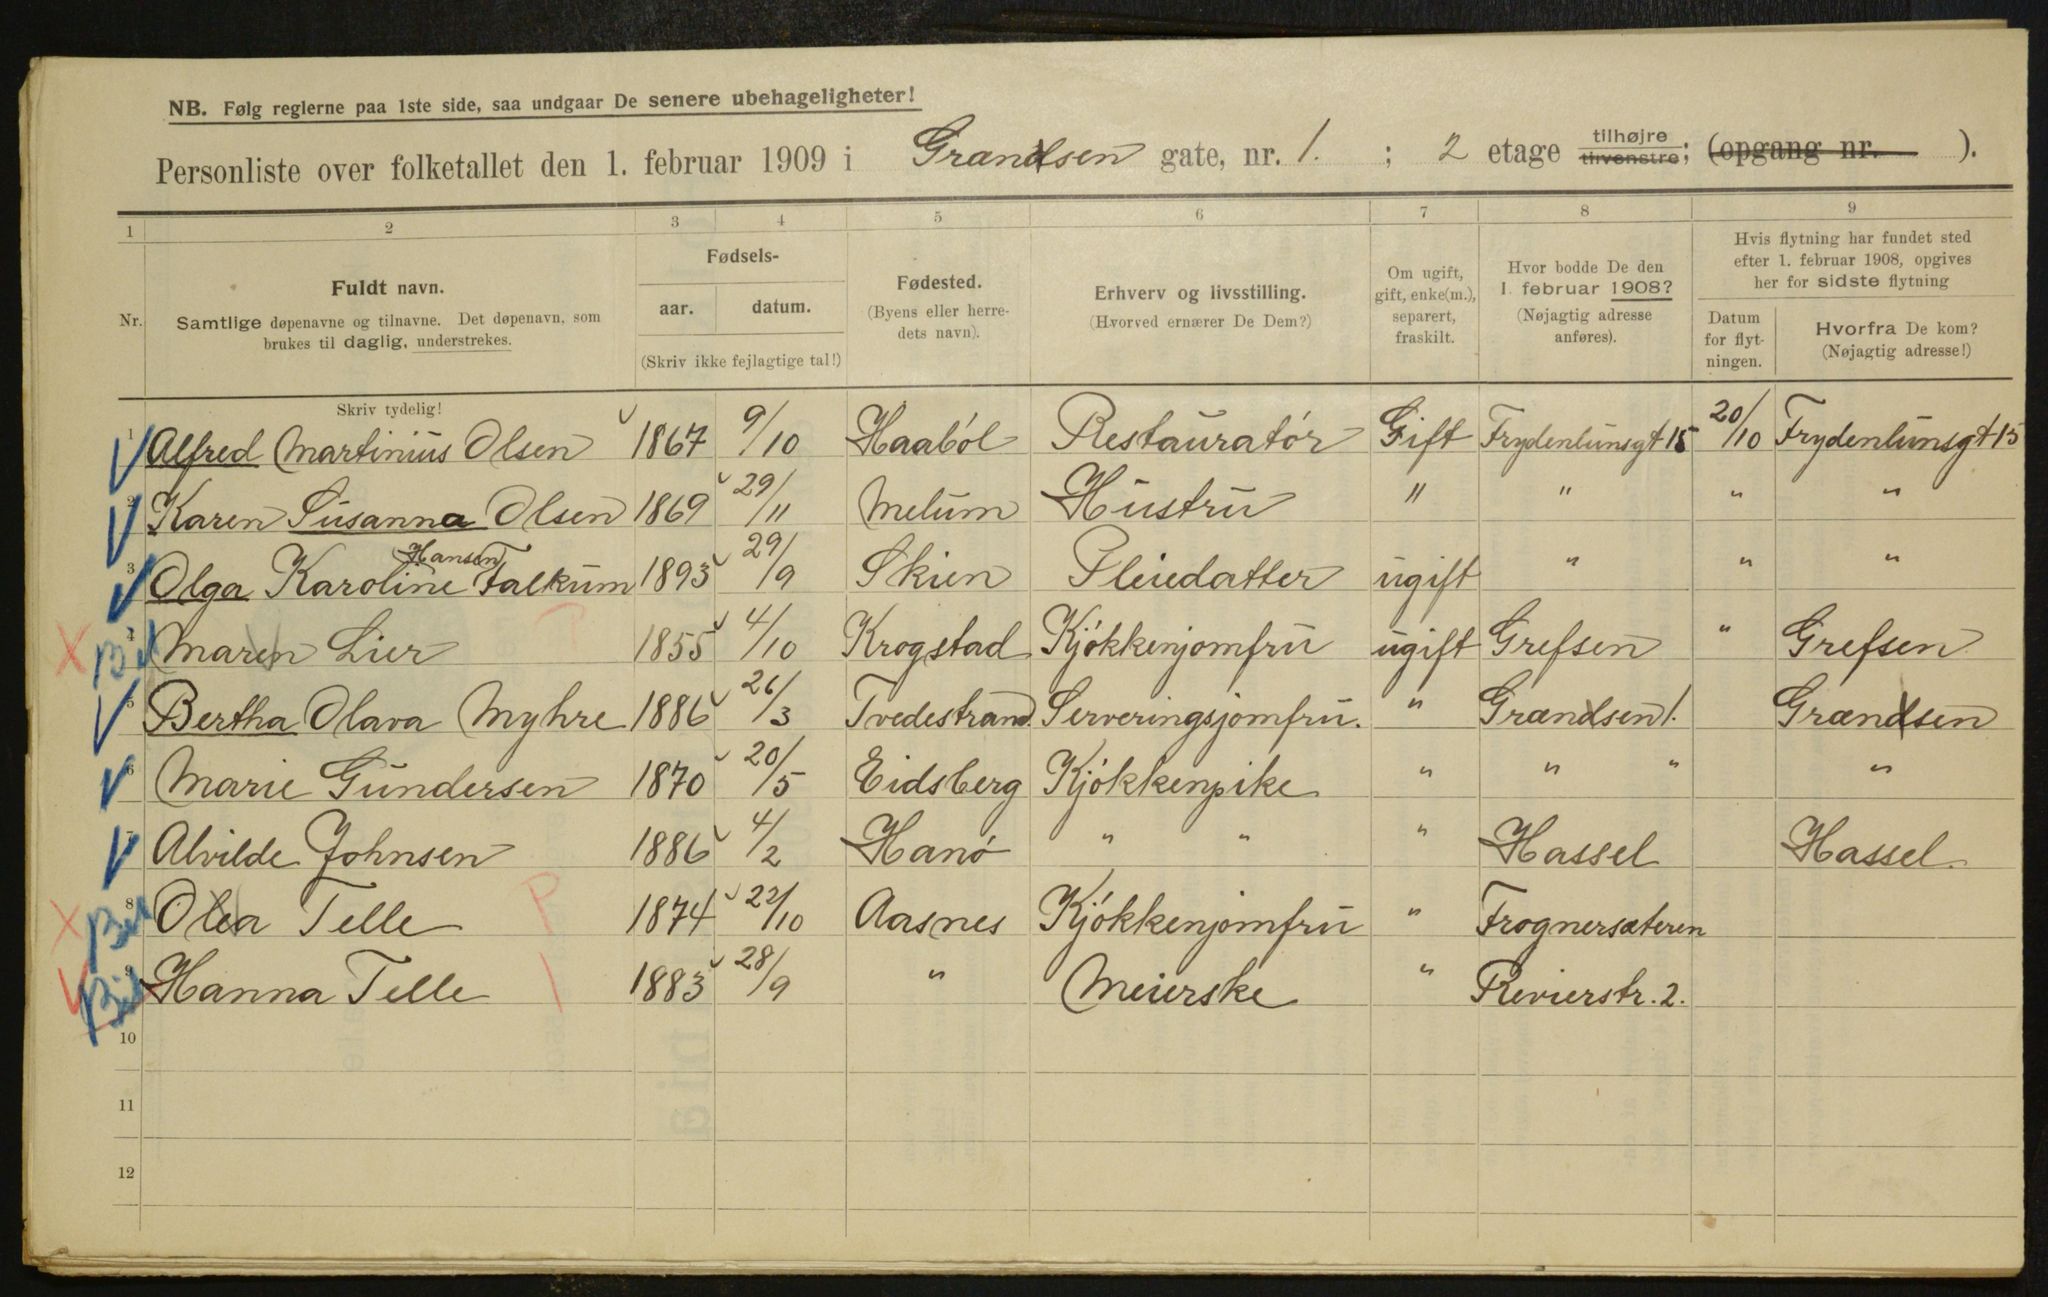 NB. Følg reglerne paa 1ste side, saa undgaar De senere ubehageligheter!
Personliste over folketallet den 1. februar 1909 i Grændsen gate, nr. 1. ; 2 etage tilhøjre tilvenstre; (opgang nr. ).
1 2 3 4 5 6 7 8 9
Nr.
Fuldt navn.
Samtlige døpenavne og tilnavne. Det døpenavn, som
brukes til daglig, understrekes.
Fødsels-
aar. datum.
(Skriv ikke fejlagtige tal!)
Fødested.
(Byens eller herre-
dets navn).
Erhverv og livsstilling.
(Hvorved ernærer De Dem?)
Om ugift,
gift, enke(m.),
separert,
fraskilt.
Hvor bodde De den
1. februar 1908?
(Nøjagtig adresse
anføres).
Hvis flytning har fundet sted
efter 1. februar 1908, opgives
her for sidste flytning
Datum
for flyt-
ningen.
Hvorfra De kom?
(Nøjagtig adresse!)
Skriv tydelig!
1 Alfred Martinius Olsen 1867 9/10 Haaból Restauratór Gift Frydenlunsgt 15 20/10 Frydenlunsgt 15
2 Karen Susanna Olsen 1869 29/11 Melum Hustru " " " "
3 Olga Karoline Hansen Falkum 1893 29/9 Skien Pleiedatter ugift " " "
4 Maren Lier 1855 4/10 Krogstad Kjókkenjomfru ugift Grefsen " Grefsen
5 Bertha Olava Myhre 1886 26/3 Tvedestrand Serveringsjomfru. " Grændsen 1. Grændsen
6 Marie Gundersen 1870 20/5 Eidsberg Kjókkenpike " " " "
7 Alvilde Johnsen 1886 4/2 Hanó " " " Hassel Hassel
8 Olea Telle P 1874 22/10 Aasnes Kjókkenjomfru " Frognersæteren
9 Hanna Telle 1883 28/9 " Meierske " Revierstr. 2.
10
11
12